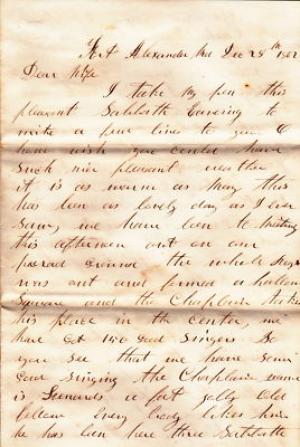 Fort Alexander Dec 28th 1862
Dear Wife
I take my pen this
pleasant Sabboth Evening to
write a few lines to you I
wish you could have
such nice pleasant weather
it is as warm as May this
has been as lovely day as I ever
saw, we have been to meeting
this afternoon out on our
ground the whole Regt
was out and formed a hollow
Square and the Chaplain takes
his place in the center, we
have got two good singers So
you see that we have some
good singing the Chaplains name
is a fat jolly old
fellow Every body likes him
he has been here three Sabboth